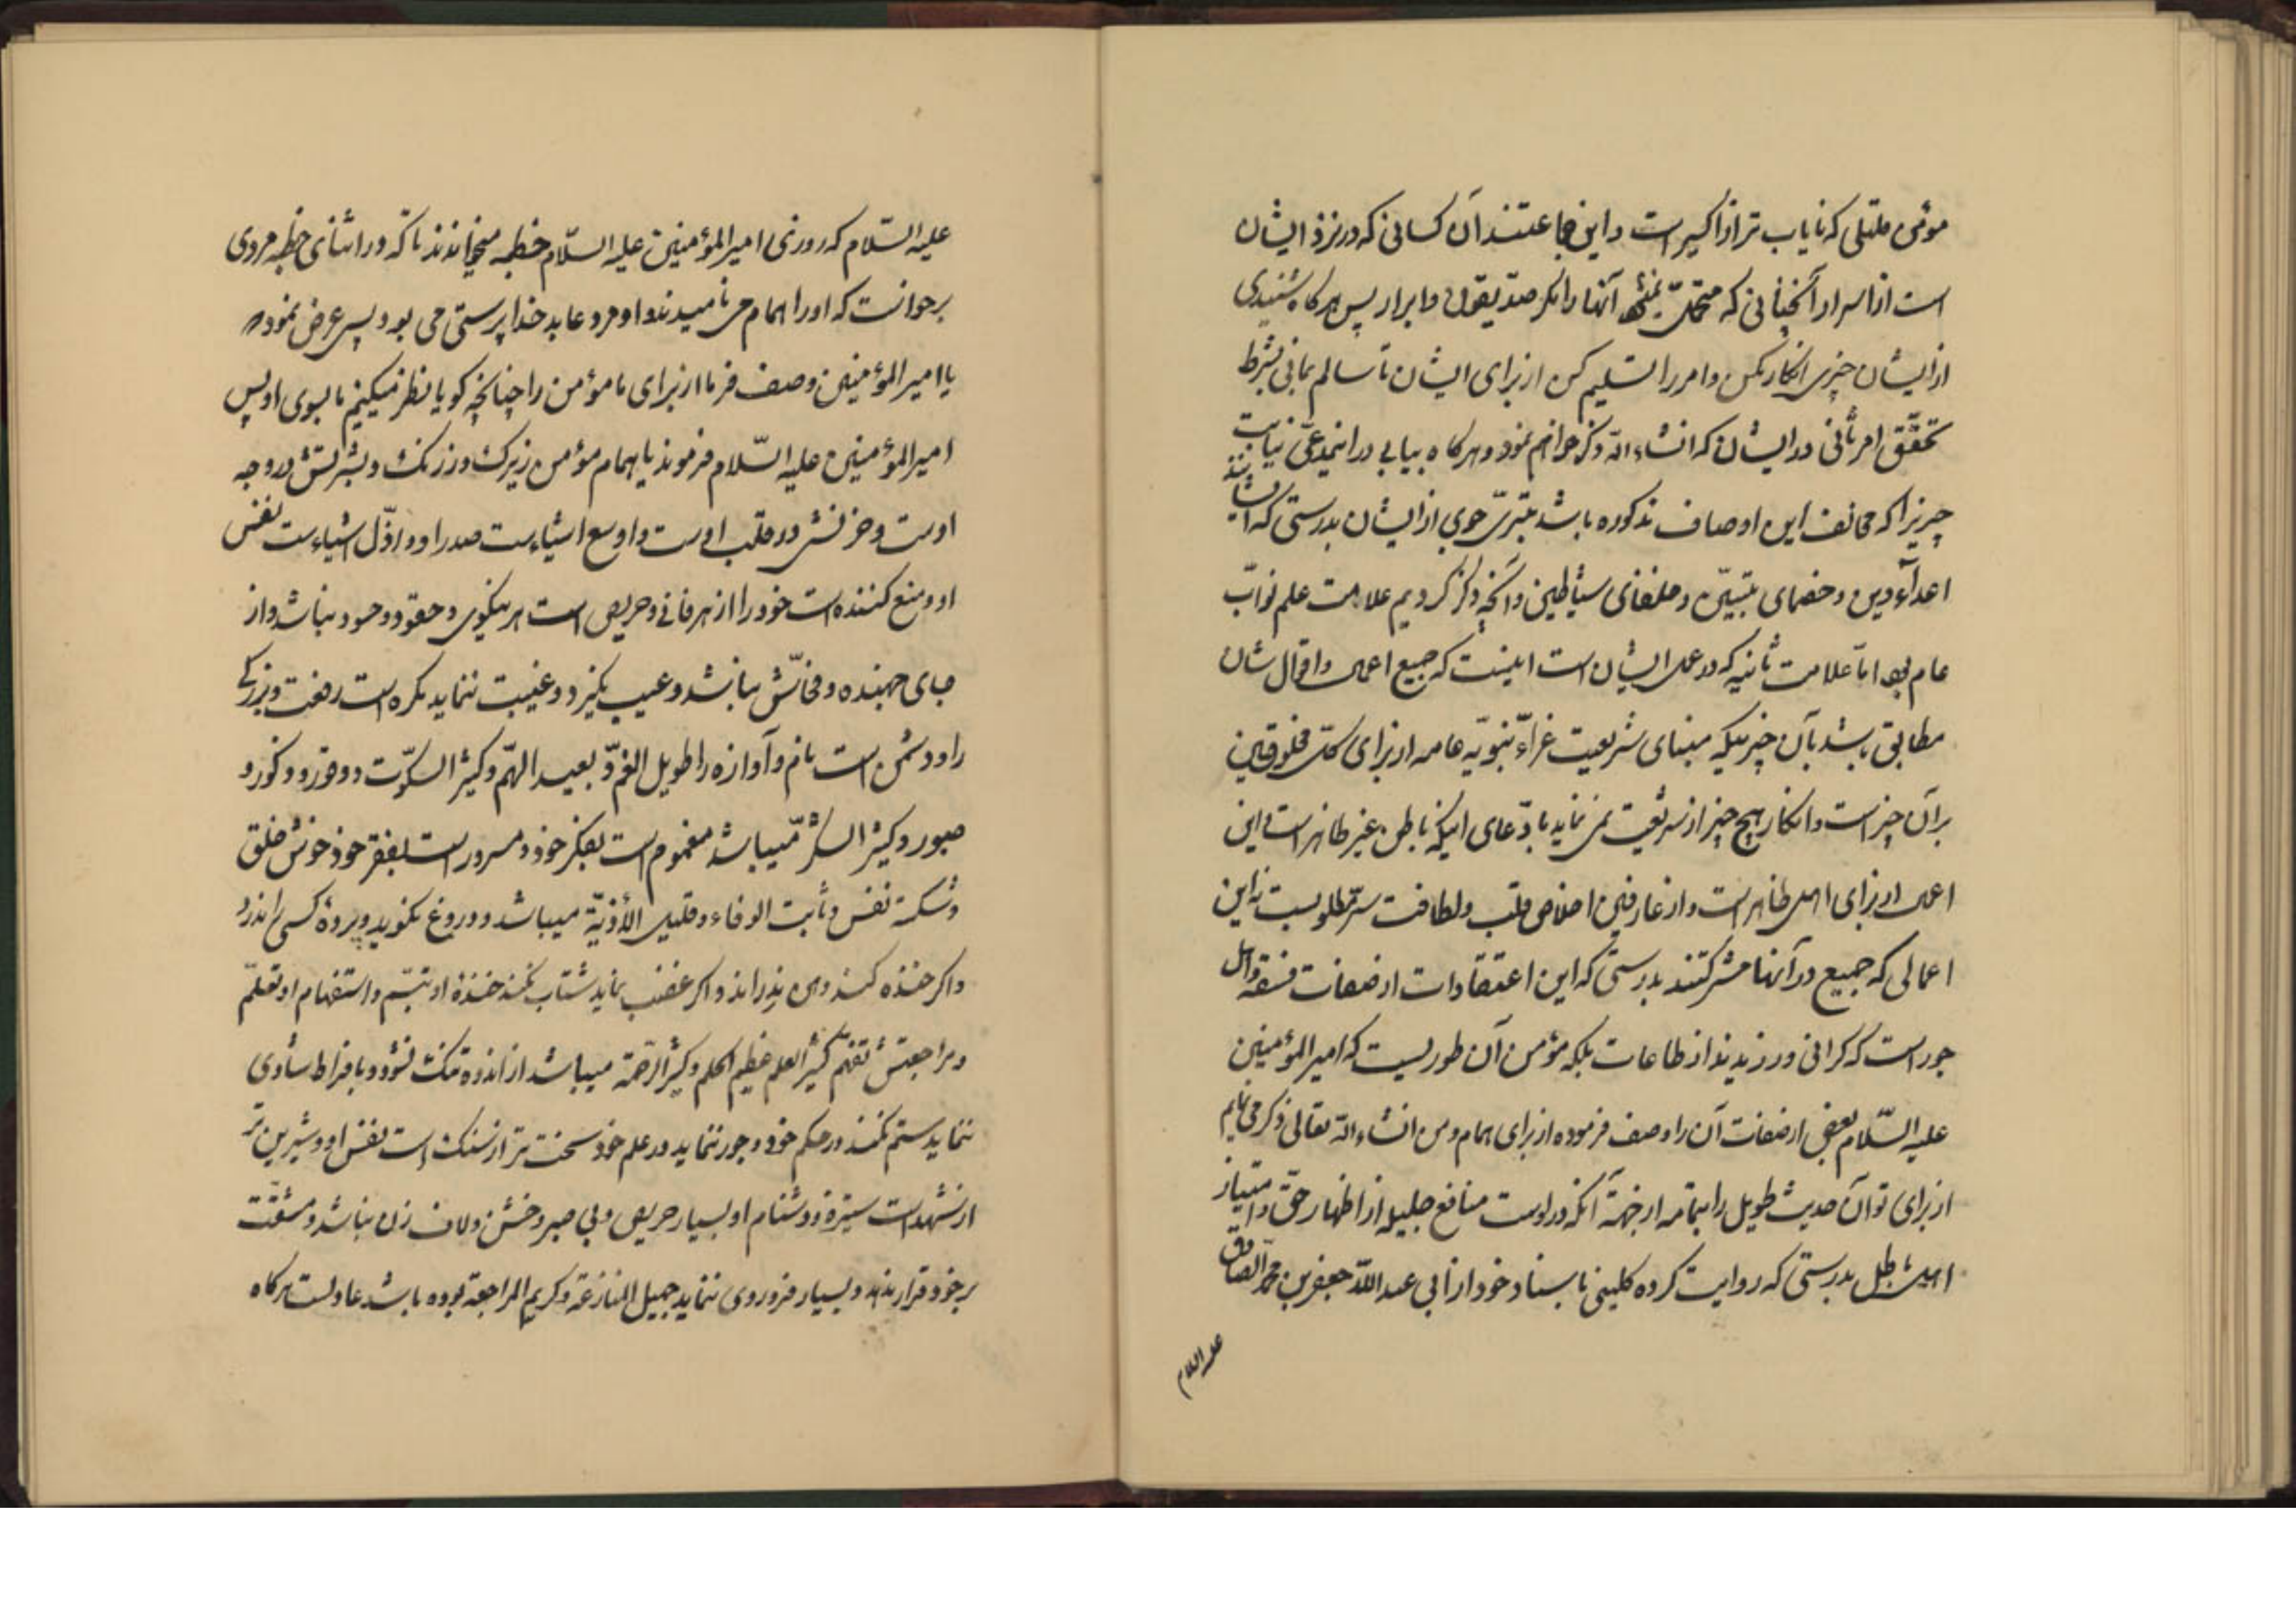 مؤمن ملتلی که نایاب تر از اکسیر است و این جماعتند آن کسانی که در نزد ایشان
است از اسرار آنچنانی که متحمّل نمیشود آنها را مگر صدّیقون و ابرار پس هرگاه شنیدی
از ایشان چیزی انکار مکن و امر را تسلیم کن از برای ایشان تا سالم بمانی بشرط
تحقّق امر ثانی در ایشان که انشاء الله ذکر خواهم نمود و هرگاه بیابی در این مدعی نیابت
چیزیرا که مخالف این اوصاف مذکوره باشد تبرّی جوی از ایشان بدرستی که ایشانند
اعدآء دین و خصمای نبیّین و خلفای شیاطین و آنچه ذکر کردیم علامت علم نوّاب
عام بود امّا علامت ثانیه که در عمل ایشان است اینست که جمیع اعمال و اقوالشان
مطابق باشد بآن چیزیکه مبنای شریعت غرّاء نبویّه عامه از برای کلّ مخلوقین
بر آن چیز است و انکار هیچ چیز از شریعت نمی نماید بادّعای اینکه باطن غیر ظاهر است و این
اعمال از برای اهل ظاهر است و از عارفین اخلاص قلب و لطافت سرّ مطلوبست نه این
اعمالی که جمیع در آنها مشترکند بدرستی که این اعتقادات از صفات فسقه و اهل
جور است که گرانی ورزیدند از طاعات بلکه مؤمن آن طوریست که امیر المؤمنین
علیه السّلام بعضی از صفات آن را وصف فرموده از برای همام و من انشاء الله تعالی ذکر می نمایم
از برای تو آن حدیث طویل را بتمامه از جهة آنکه در اوست منافع جلیله از اظهار حقّ و امتیاز
اهل باطل بدرستی که روایت کرده کلینی باسناد خود از ابی عبد الله جعفر بن محمّد الصّادق
علیه السلام
علیه السّلام که روزی امیر المؤمنین علیه السّلام خطبه میخواندند تا آنکه در اثنای خطبه مردی
برخواست که او را همام می نامیدند و او مرد عابد خدا پرستی می بود پس عرض نمود
یا امیر المؤمنین وصف فرما از برای ما مؤمن را چنانچه گویا نظر میکنیم ما بسوی او پس
امیر المؤمنین علیه السّلام فرمودند یا همام مؤمن زیرک و زرنگ و بشریتش در وجه
اوست و حزنش در قلب اوست و اوسع اشیاء است صدر او و اذلّ اشیاء است نفس
او و منع کننده است خود را از هر فانی و حریص است هر نیکوی و حقود و حسود نباشد و از
جای جهنده و فحّاش نباشد و عیب نگیرد و غیبت ننماید مکره است رفعت و بزرگی
را و دشمن است نام و آوازه را طویل الغمّ و بعید الهمّ و کثیر السکوت و وقور و ذکور و
صبور و کثیر السکر میباشد مغموم است بفکر خود و مسرور است بفقر خود خوش خلق
و شکسته نفس و ثابت الوفاء و قلیل الأذیّة میباشد و دروغ نگوید و پردهٔ کسی را ندرد
و اگر خنده کند دهن ندراند و اگر غضب نماید شتاب نکند خندهٔ او تبسّم و استفهام او تعلّم
و مراجعتش تفهّم کثیر العلم عظیم الحلم و کثیر الرّحمة میباشد از اندوه تنگ نشود و بافراط شادی
ننماید ستم نکند در حکم خود و جور ننماید در علم خود سخت تر از سنگ است نفس او و شیرین تر
از شهد است ستیزه و دشنام او بسیار حریص و بی صبر و خشن و لاف زن نباشد و مشقّت
بر خود قرار ندهد و بسیار فرو روی ننماید جمیل المنازعة و کریم المراجعة بوده باشد عادلست هرگاه